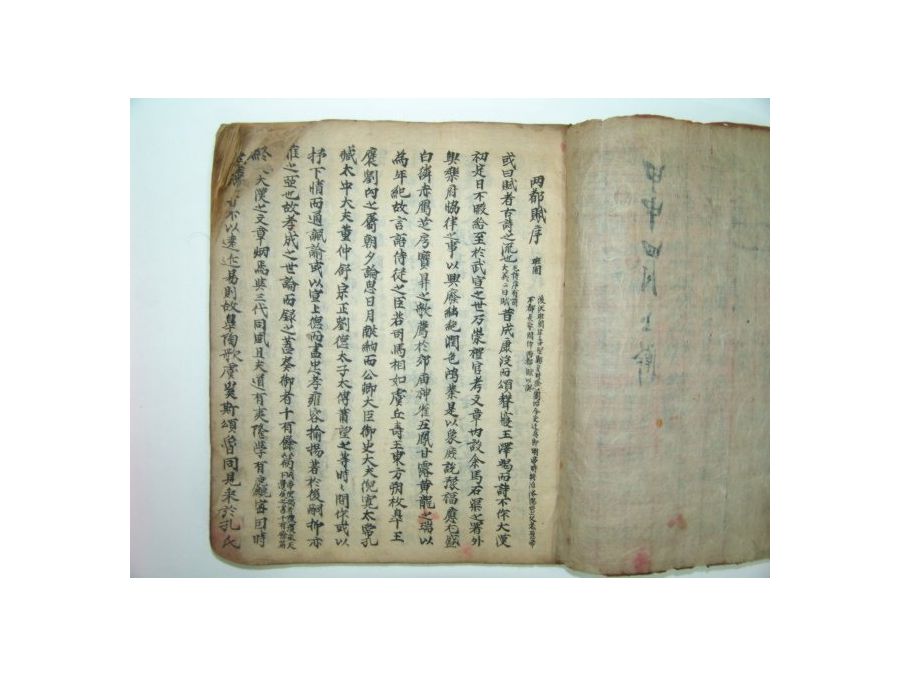 甲申四月上澣
兩都賦序 班固
或曰賦者古詩之流也昔成康沒而頌聲寢王澤竭而詩不作大漢
初定日不暇給至於武宣之世乃崇禮官考文章內設金馬石渠之署外
興樂府協律之事以興廢繼絕潤色鴻業是以衆庶說豫福應尤盛
白獜赤鴈芝房寶鼎之歌薦於郊廟神雀五鳳甘露黃龍之瑞以
為年紀故言語侍從之臣若司馬相如虞丘壽王東方朔枚皐王
襃劉向之屬朝夕論思日月獻納而公卿大臣御史大夫倪寬太常孔
臧太中大夫董仲舒宗正劉德太子太傅蕭望之等時〻間作或以
抒下情而通諷諭或以宣上德而盡忠孝雍容揄揚著於後嗣抑亦
雅之亞也故孝成之世論而錄之蓋奏御者千有餘篇
大漢之文章炳焉與三代同風且夫道有夷隆學有麤密因時
不以遠近易則故皐陶歌虞奚斯頌魯同見采於孔氏